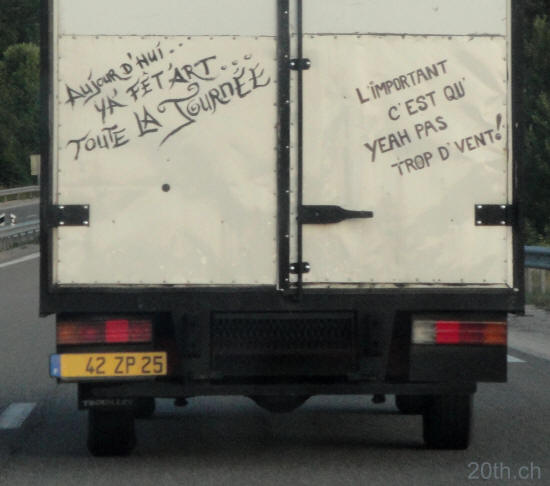 AUJOURD'HUI...
YA' FÊT'ART....
TOUTE LA JOURNÉE
L'IMPORTANT
C'EST QU'
YEAH PAS
TROP D'VENT!
42 ZP 25
20th.ch